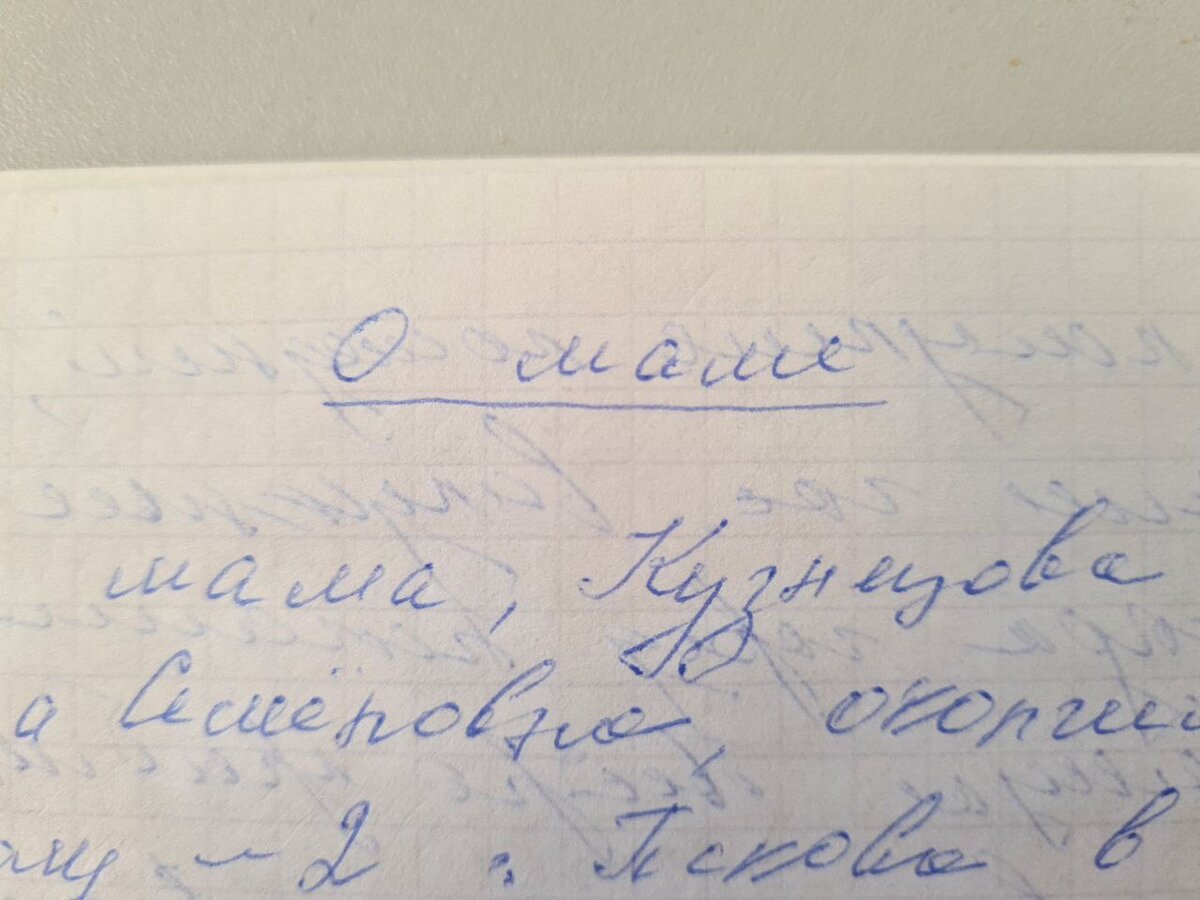 О маме
мама, Кузнецова
а Семёновна, окончи
2 г. Пскова в